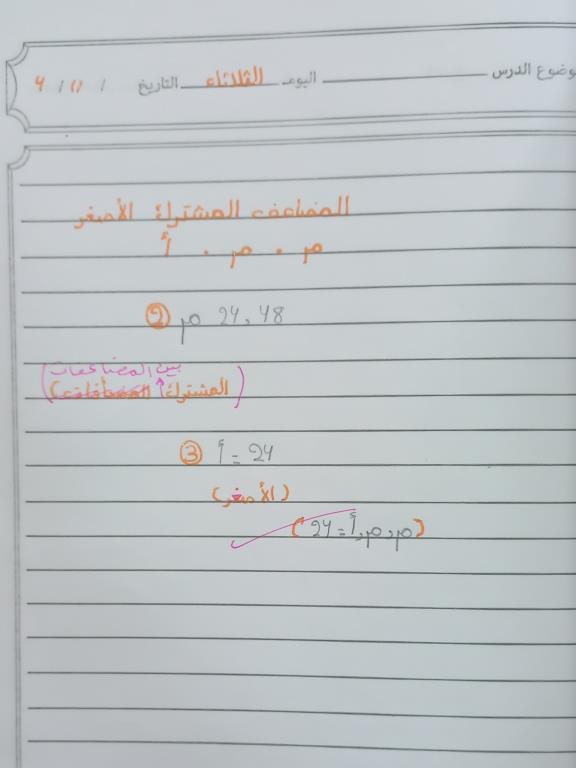 موضوع الدرس ــــــــ اليوم الثلاثاء التاريخ / 11 / 4
المضاعف المشترك الأصغر
م . م . أ
② م 24 , 48
بين المضاعفات
(المشترك
③ أ = 24
(الأصغر)
(م، م، أ = 24)